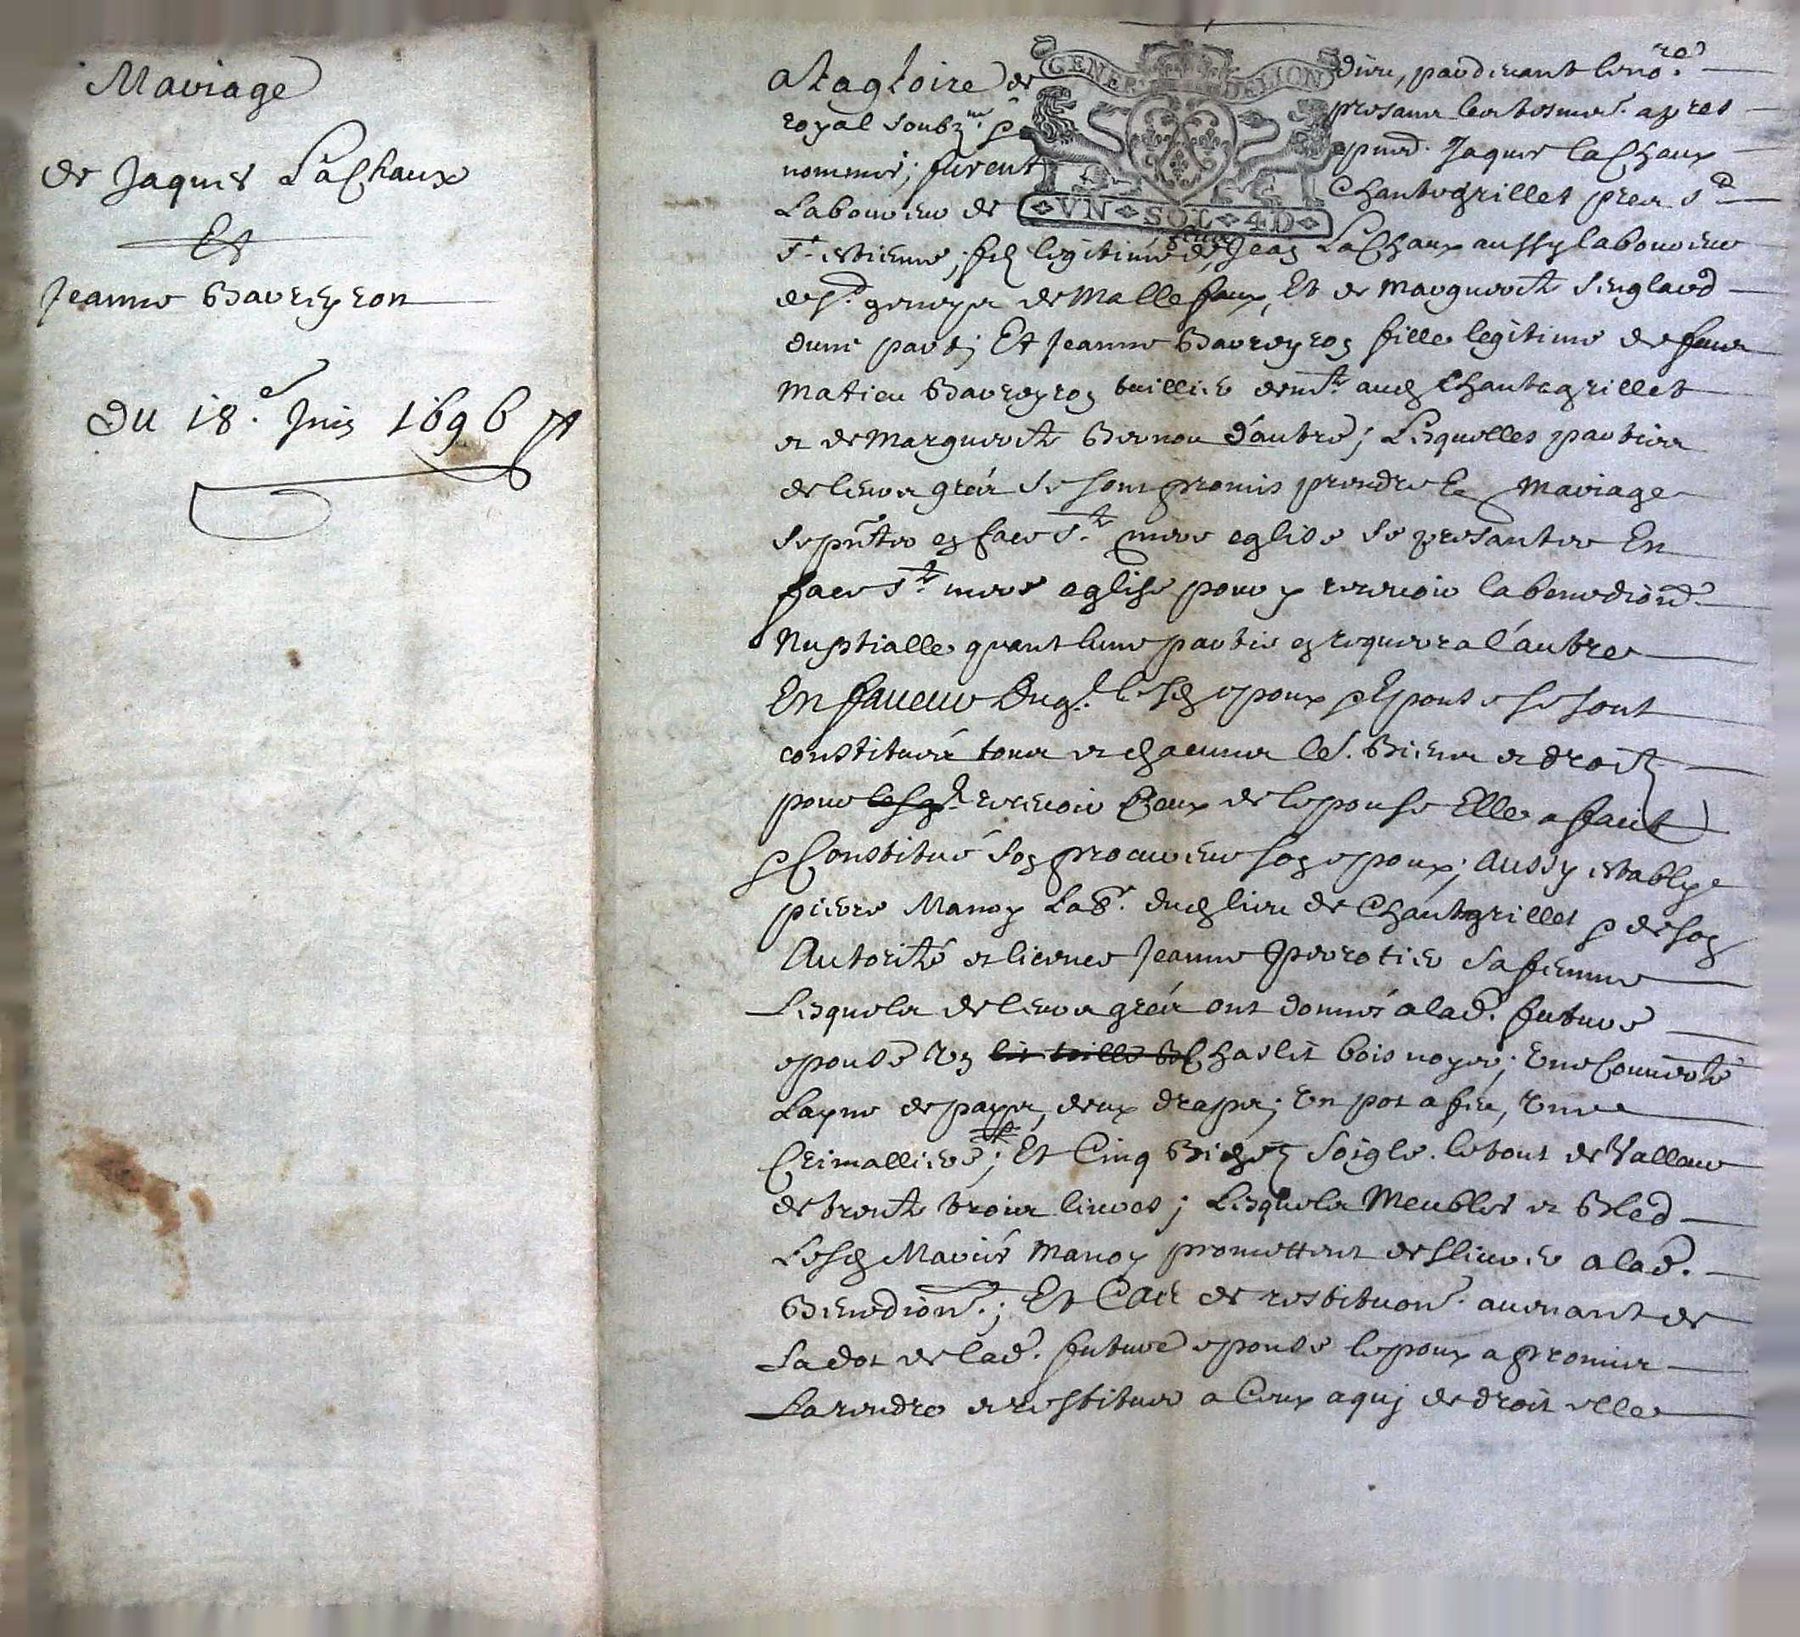 Mariage
de Jaques LaChaux
Et
Jeanne Barreyron
du 18.e Juin 1696
GENER DE LION
VN SOL 4D
a la gloire de dieu, pardevant le no.re
royal soubz.ne & presans les tesmoins apres
nommés; furent Jaques laChaux
Laboureur de Chantegrillet pres s.t
s.t estienne, filz legitime de feu Jean LaChaux aussy laboureur
de s.t geneys de Mallefaux, Et de Marguerite
dune part; Et Jeanne Barreyron fille legitime de feu
Matieu Barreyron audt Chantegrillet
et de Marguerite d'autre; Lesquelles parties
de leurs grés se sont promis prendre En Mariage
se pnter en face s.te mere eglise se presanter En
face s.te mere eglise pour y recevoir la benedion
Nuptialle quant lune partie en requerra l'autre
En faveur duq.l lesd epoux & Epouse se sont
constitués tous et chacuns les. Biens et droitz
pour lesq.l recevoir Ceux de lepouse Elle a fait
& Constitué son procureur son epoux; aussy estably
pierre Manoy Lab.r dud lieu de Chantegrillet & de son
Autorité et licence Jeanne sa femme
Lesquels de leurs grés ont donné a lad. future
epouse Un Chaslit bois noyer; une Couverte
Layne de pays, deux draps; Un pot a feu, Une
Crimalliere; Et Cinq Bichetz soigle. le tout de Valleur
de trente trois livres; Lesquels Meubles et Bled
Lesd Mariés Manoy promettent deslivrer a lad.
Benedion.; Et Cas de restituon. avenant de
La dot de lad. future epouse lepoux a promis
La rendre et restituer a Ceux a quj de droit elle